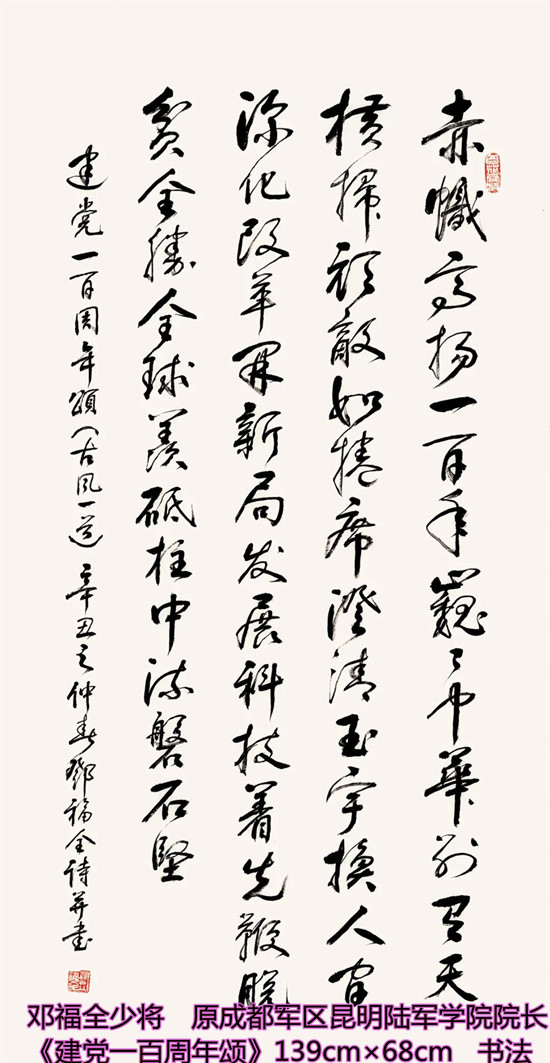 赤幟高扬一百年巍々中華别有天
横掃顽敵如捲席澄清玉宇换人间
深化改革開新局发展科技着先鞭脱
貧全勝全球羡砥柱中流磐石堅
建党一百周年頌(古风一首)辛丑之仲春鄧福全诗并書
邓福全少将 原成都军区昆明陆军学院院长
《建党一百周年颂》139cm×68cm 书法